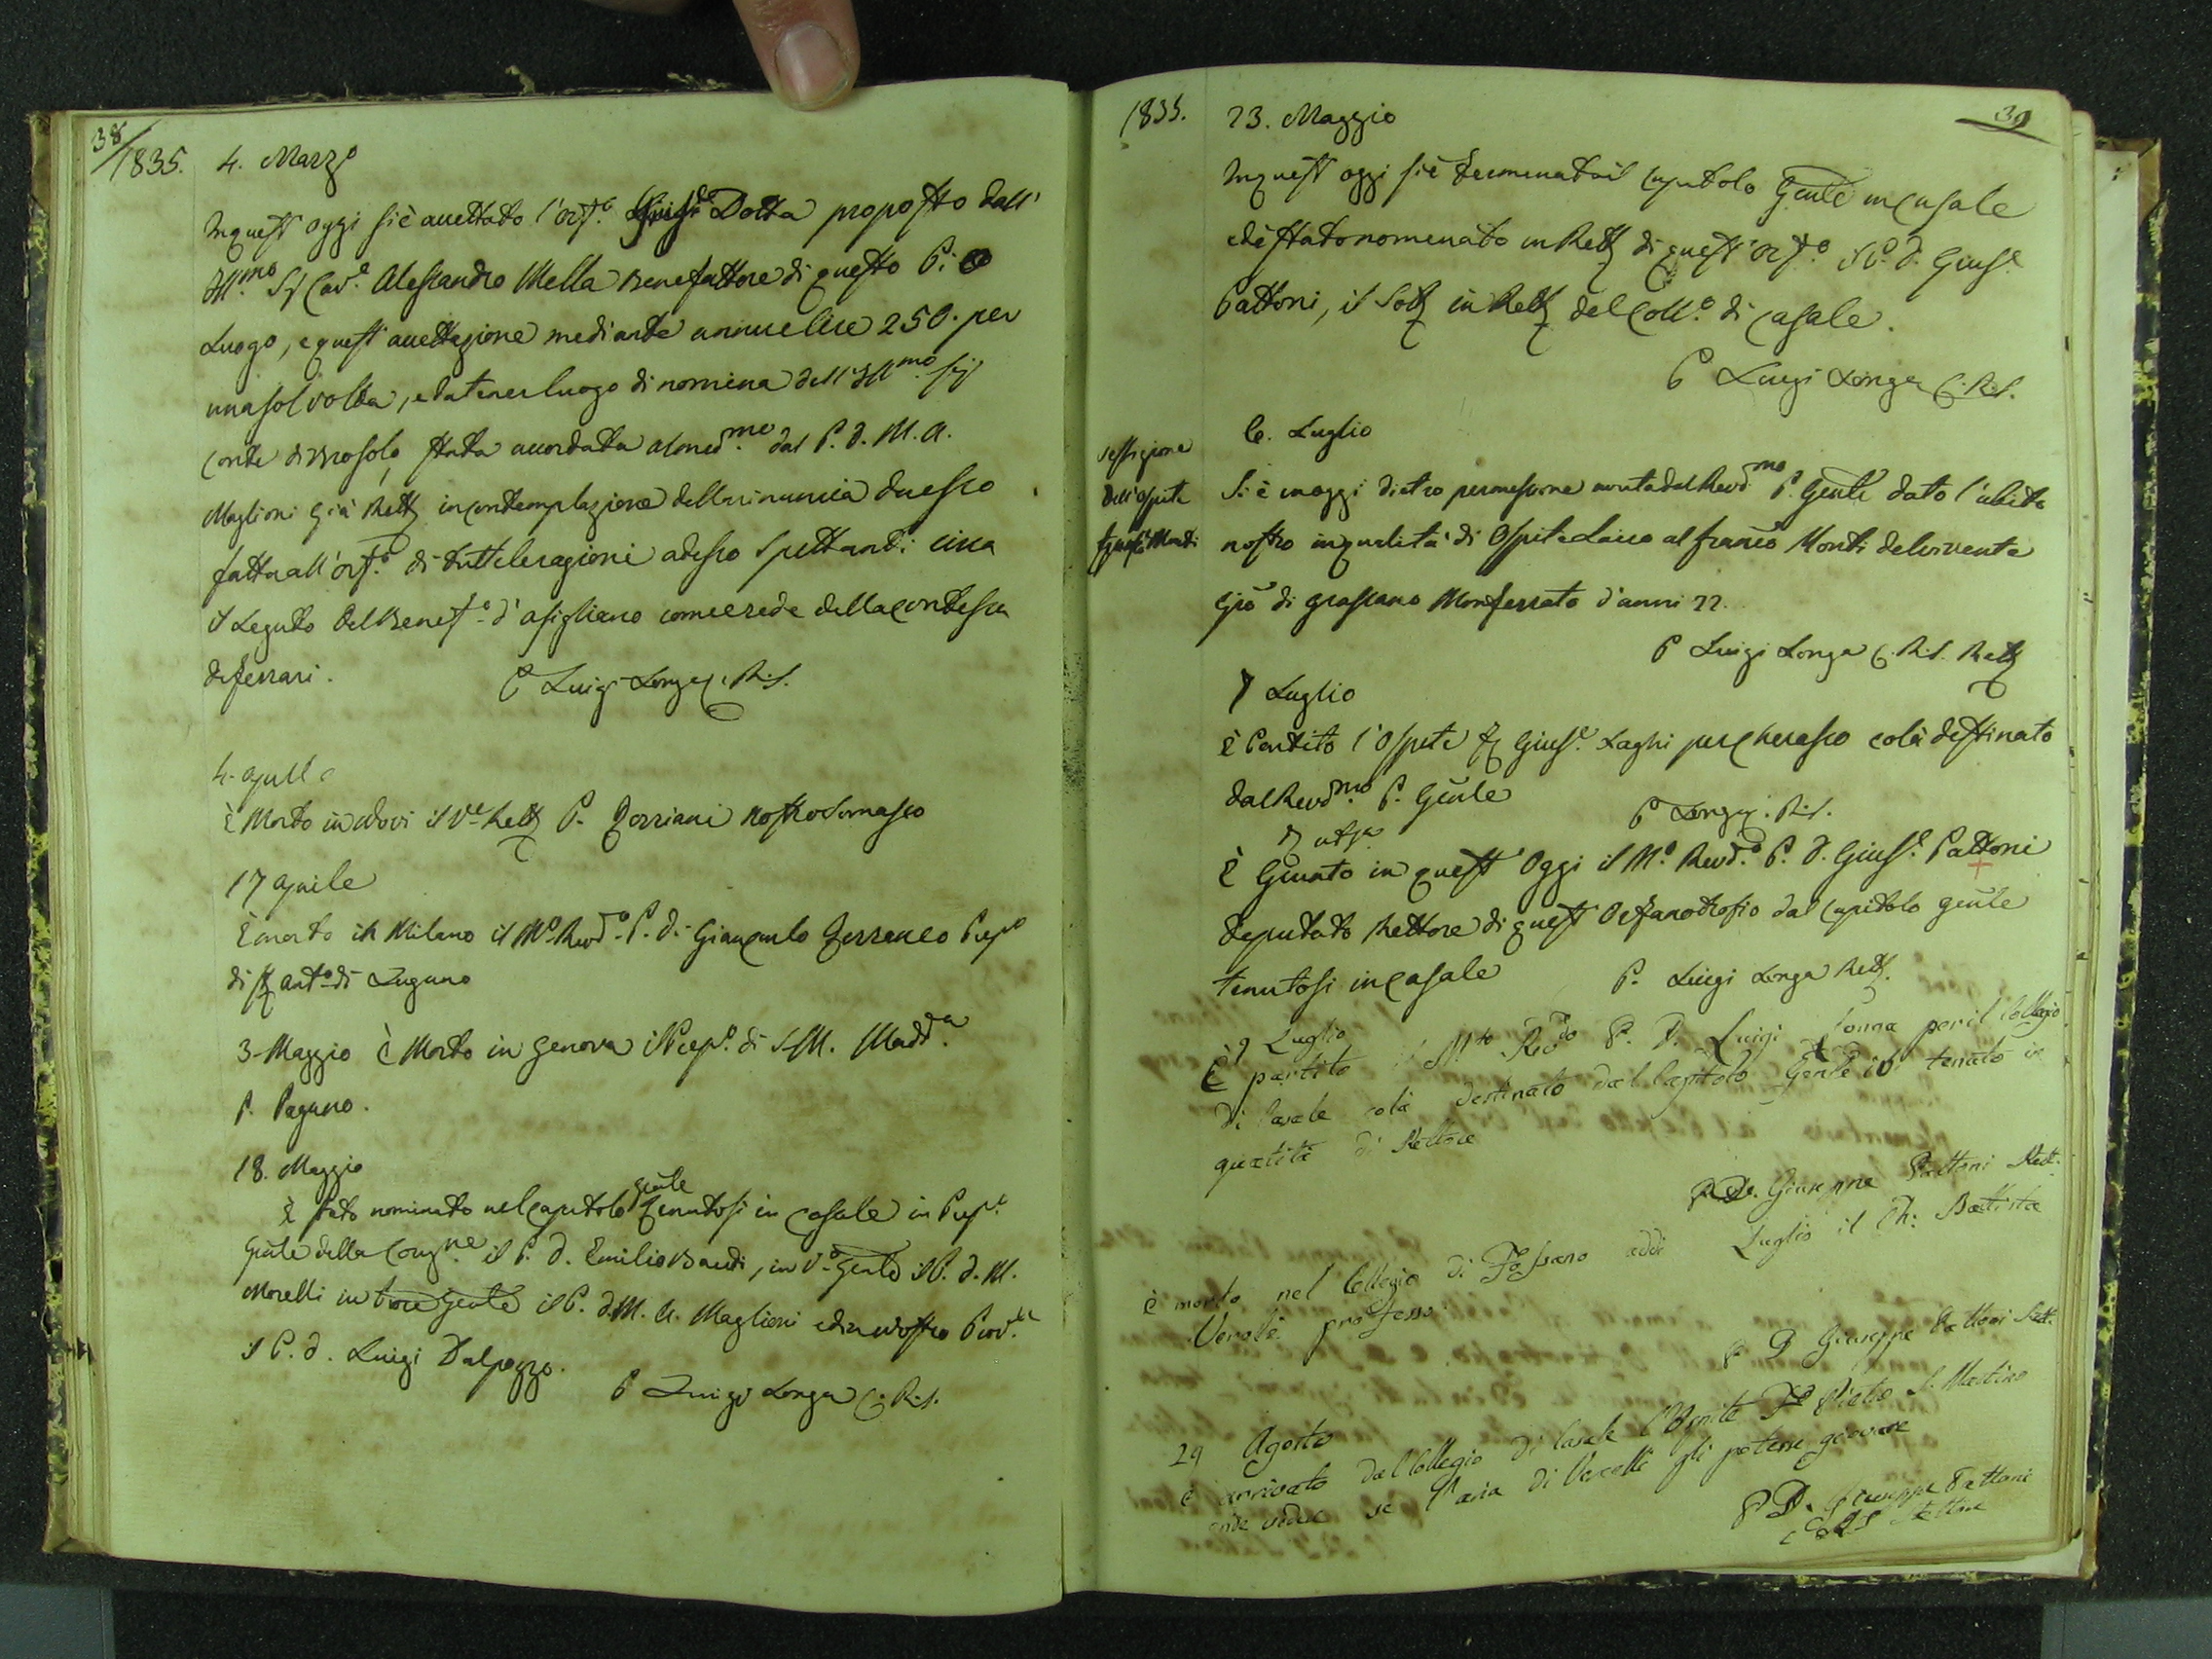 38
1835. 4. Marzo
In quest' oggi si è accettato l'orf.o Giuse Dotta proposto dall'
Ill.mo Sig Cav.e Alessandro Mella Benefattore di questo P.io
Luogo, e quest' accettazione mediante annue lire 250. per
una sol volta, e da tener luogo di nomina dell'Ill.mo Sig
Conte di Brosolo stata accordata al med.mo dal P. D. M. A.
Maglioni già Rett in contemplazione della rinuncia da esso
fatta all'orf.o di tutte le ragioni ad esso spettanti circa
il Legato del Benef.o d'Asigliano come erede della Contessa
de ferrari. P Luigi Longa C. R. S.
4. Aprile
È Morto in Novi il Ve Rett P. Torriani Nostro Somasco
17 Aprile
È morto in Milano il M.o Rev.do P. D. Giancarlo Prep.o
di S Ant.o di Lugano
3 Maggio è Morto in Genova il Prep.o di S. M. Madd.a
P. Pagano.
18. Maggio
È stato nominato nel capitolo gnãle tenutosi in Casale in Prep.o
Gnãle della Cong.ne il P. D. Emilio Baudi, in V.o Gnãle il P. D. M.
Morelli in Gnãle il P. D. M. A. Maglioni ed in nostro Prov.le
il P. D. Luigi Dalpozzo.
P Luigi Longa C. R. S.
1835. 23. Maggio 39
In quest' oggi si è terminato il Capitolo Gnãle in Casale
ed è stato nominato in Rett di quest' orf.o il P. D. Gius.e
Pattoni, il Sott in Rett del Coll.o di Casale.
P Luigi Longa C. R. S.
6. Luglio
Vestizione
dell'Ospite
Monti
Si è in oggi dietro permessione avuta dal Revd.mo P. Gnãle dato l'abito
nostro in qualità di Ospite Laico al franc.o Monti del vivente
Gio di Grassano Monferrato d'anni 22.
P Luigi Longa C. R. S. Rett
7 Luglio
È Partito l'Ospite Gius.e Laghi per Cherasco colà destinato
dal Revd.mo P. Gnãle P Longa C. R. S.
È Giunto in quest' Oggi il M.o Revd.o P. D. Gius.e Pattoni
deputato Rettore di quest' Orfanotrofio dal Capitolo gnãle
tenutosi in Casale P. Luigi Longa Rett.
9 Luglio
È partito il M.to Rev.do P. D. Luigi Longa per il Collegio
di Casale colà destinato dal Capitolo Gnãle ivi tenuto in
qualità di Rettore
P. D. Giuseppe Pattoni Rett.
è morto nel Collegio di Fossano addì Luglio il Ch: Battista
professo
P D Giuseppe Pattoni Rett.
29 Agosto
è arrivato dal Collegio di Casale l'Ospite Pietro S. Martino
onde vedere se l'aria di Vercelli gli potesse giovare
P D. Giuseppe Pattoni
C R S Rettore